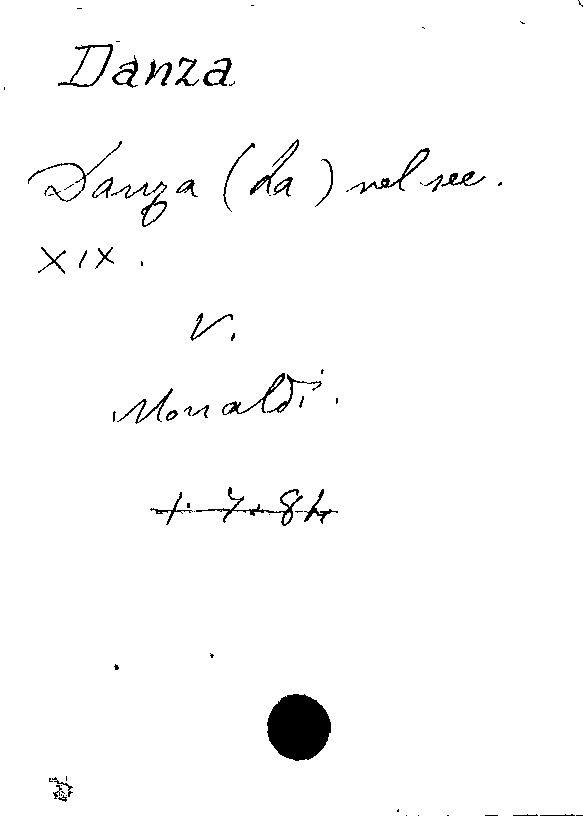 Danza
Danza (La) nel sec.
XIX.
V.
Monaldi.
1. 7. 84